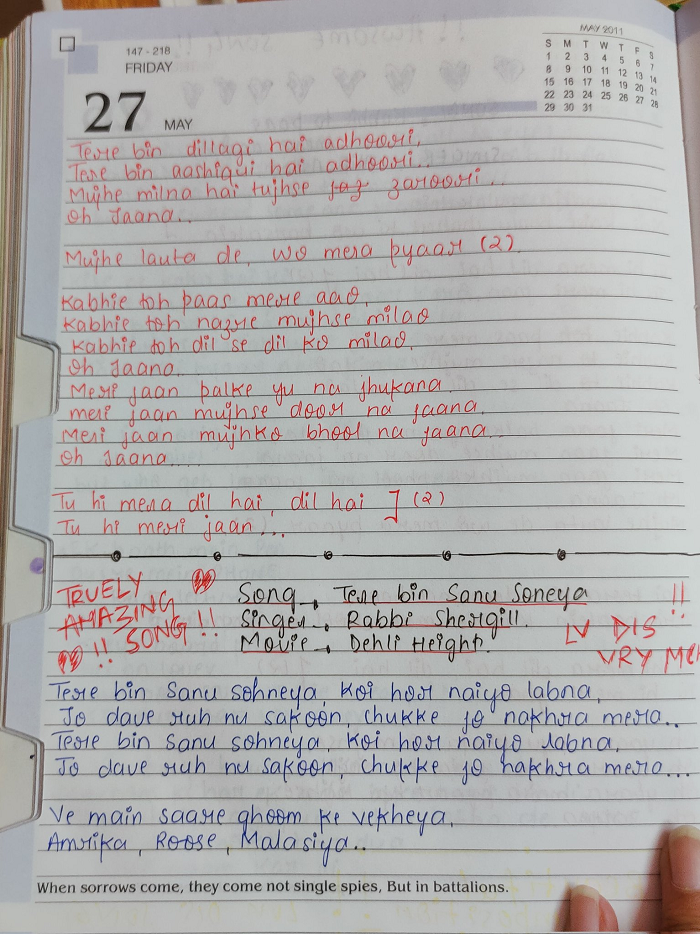 147 - 218
FRIDAY
27 MAY
MAY 2011
S M T W T F S
1 2 3 4 5 6 7
8 9 10 11 12 13 14
15 16 17 18 19 20 21
22 23 24 25 26 27 28
29 30 31
Tere bin dillagi hai adhoori,
Tere bin aashiqui hai adhoori..
Mujhe milna hai tujhse zaroori...
Oh Jaana..
Mujhe lauta de, wo mera pyaar (2)
Kabhie toh paas mere aao,
Kabhie toh nazre mujhse milao
Kabhie toh dil se dil ko milao,
Oh Jaana...
Meri jaan palke yu na jhukana
meri jaan mujhse door na jaana,
Meri jaan mujhko bhool na jaana...
Oh Jaana....
Tu hi mera dil hai, dil hai ] (2)
Tu hi meri jaan...
TRUELY
AMAZING
!! SONG !!
Song → Tere bin Sanu Soneya
Singer → Rabbi Shergill.
Movie → Dehli Height.
!!
LV DIS
VRY MCH
Tere bin Sanu sohneya, koi hor naiyo labna,
Jo dave ruh nu sakoon, chukke jo nakhra mera..
Tere bin Sanu sohneya, koi hor naiyo labna,
Jo dave ruh nu sakoon, chukke jo nakhra mera...
Ve main saare ghoom ke vekheya,
Amrika, Roose, Malasiya..
When sorrows come, they come not single spies, But in battalions.